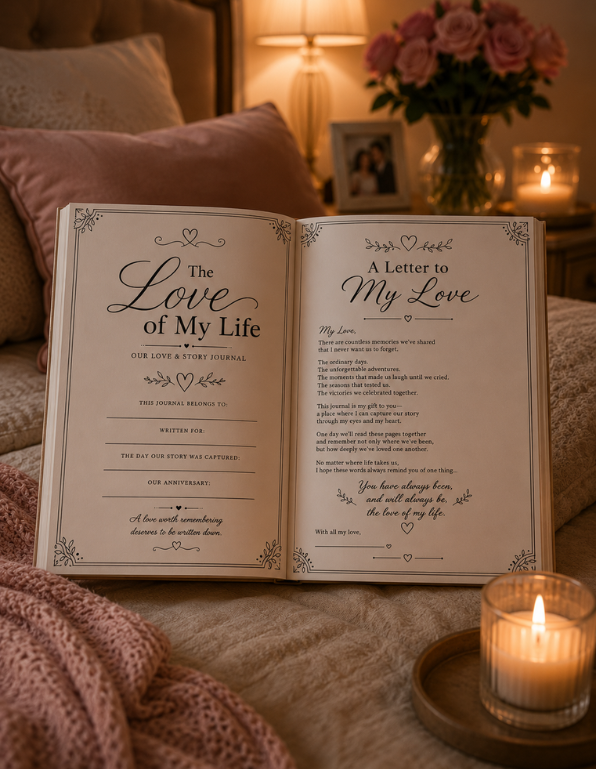 The
Love
of My Life
OUR LOVE & STORY JOURNAL
THIS JOURNAL BELONGS TO:
WRITTEN FOR:
THE DAY OUR STORY WAS CAPTURED:
OUR ANNIVERSARY:
A love worth remembering
deserves to be written down.
A Letter to
My Love
My Love,
There are countless memories we've shared
that I never want us to forget.
The ordinary days.
The unforgettable adventures.
The moments that made us laugh until we cried.
The seasons that tested us.
The victories we celebrated together.
This journal is my gift to you—
a place where I can capture our story
through my eyes and my heart.
One day we'll read these pages together
and remember not only where we've been,
but how deeply we've loved one another.
No matter where life takes us,
I hope these words always remind you of one thing...
You have always been,
and will always be,
the love of my life.
With all my love,